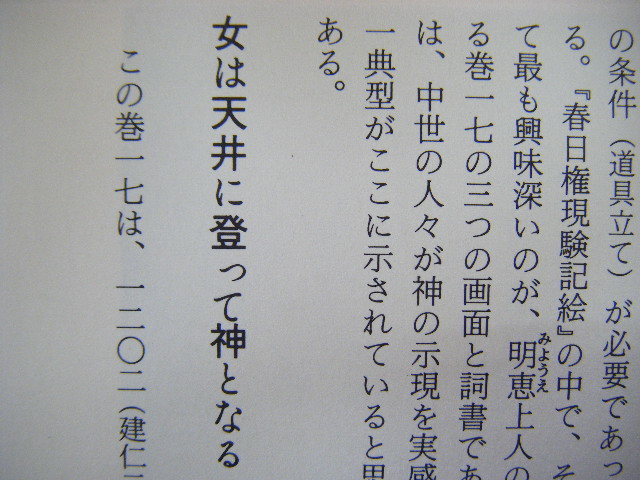 の条件（道具立て）が必要であっ
る。『春日権現験記絵』の中で、そ
て最も興味深いのが、明恵上人の
みようえ
る巻一七の三つの画面と詞書であ
は、中世の人々が神の示現を実感
一典型がここに示されていると思
ある。
女は天井に登って神となる
この巻一七は、一二〇二（建仁